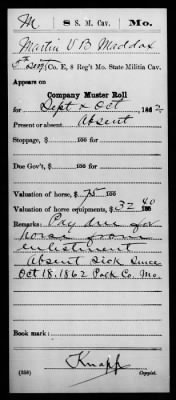 M 8 S. M. Cav. Mo.
Martin V B Maddox
5th Sergt, Co. E, 8 Reg't Mo. State Militia Cav.
Appears on
Company Muster Roll
for Sept & Oct, 1862
Present or absent Absent
Stoppage, $ 100 for
Due Gov't, $ 100 for
Valuation of horse, $ 75 100
Valuation of horse equipments, $ 32 40 100
Remarks: Pay due for
horse from
enlistment
Absent sick since
Oct 18, 1862 Polk Co. Mo.
Book mark:
Knapp
(358) Copyist.